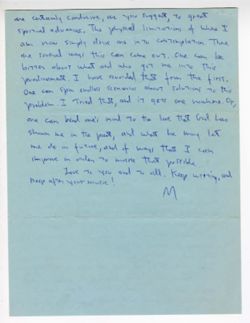 are certainly conducive, as you suggest, to great
spiritual advances. The physical limitations of where I
am now simply drive me into contemplation. There
are several ways this can come out. One can be
bitter about what and who got me into this
predicament. I have avoided that from the first.
One can spin endless scenarios about solutions to the
problem. I tried that, and it gets one nowhere. Or,
one can bend one's mind to the love that God has
shown me in the past, and what he may let
me do in future, and of ways that I can
improve in order to make that possible.
Love to you and to all. Keep writing, and
keep after your music!
M